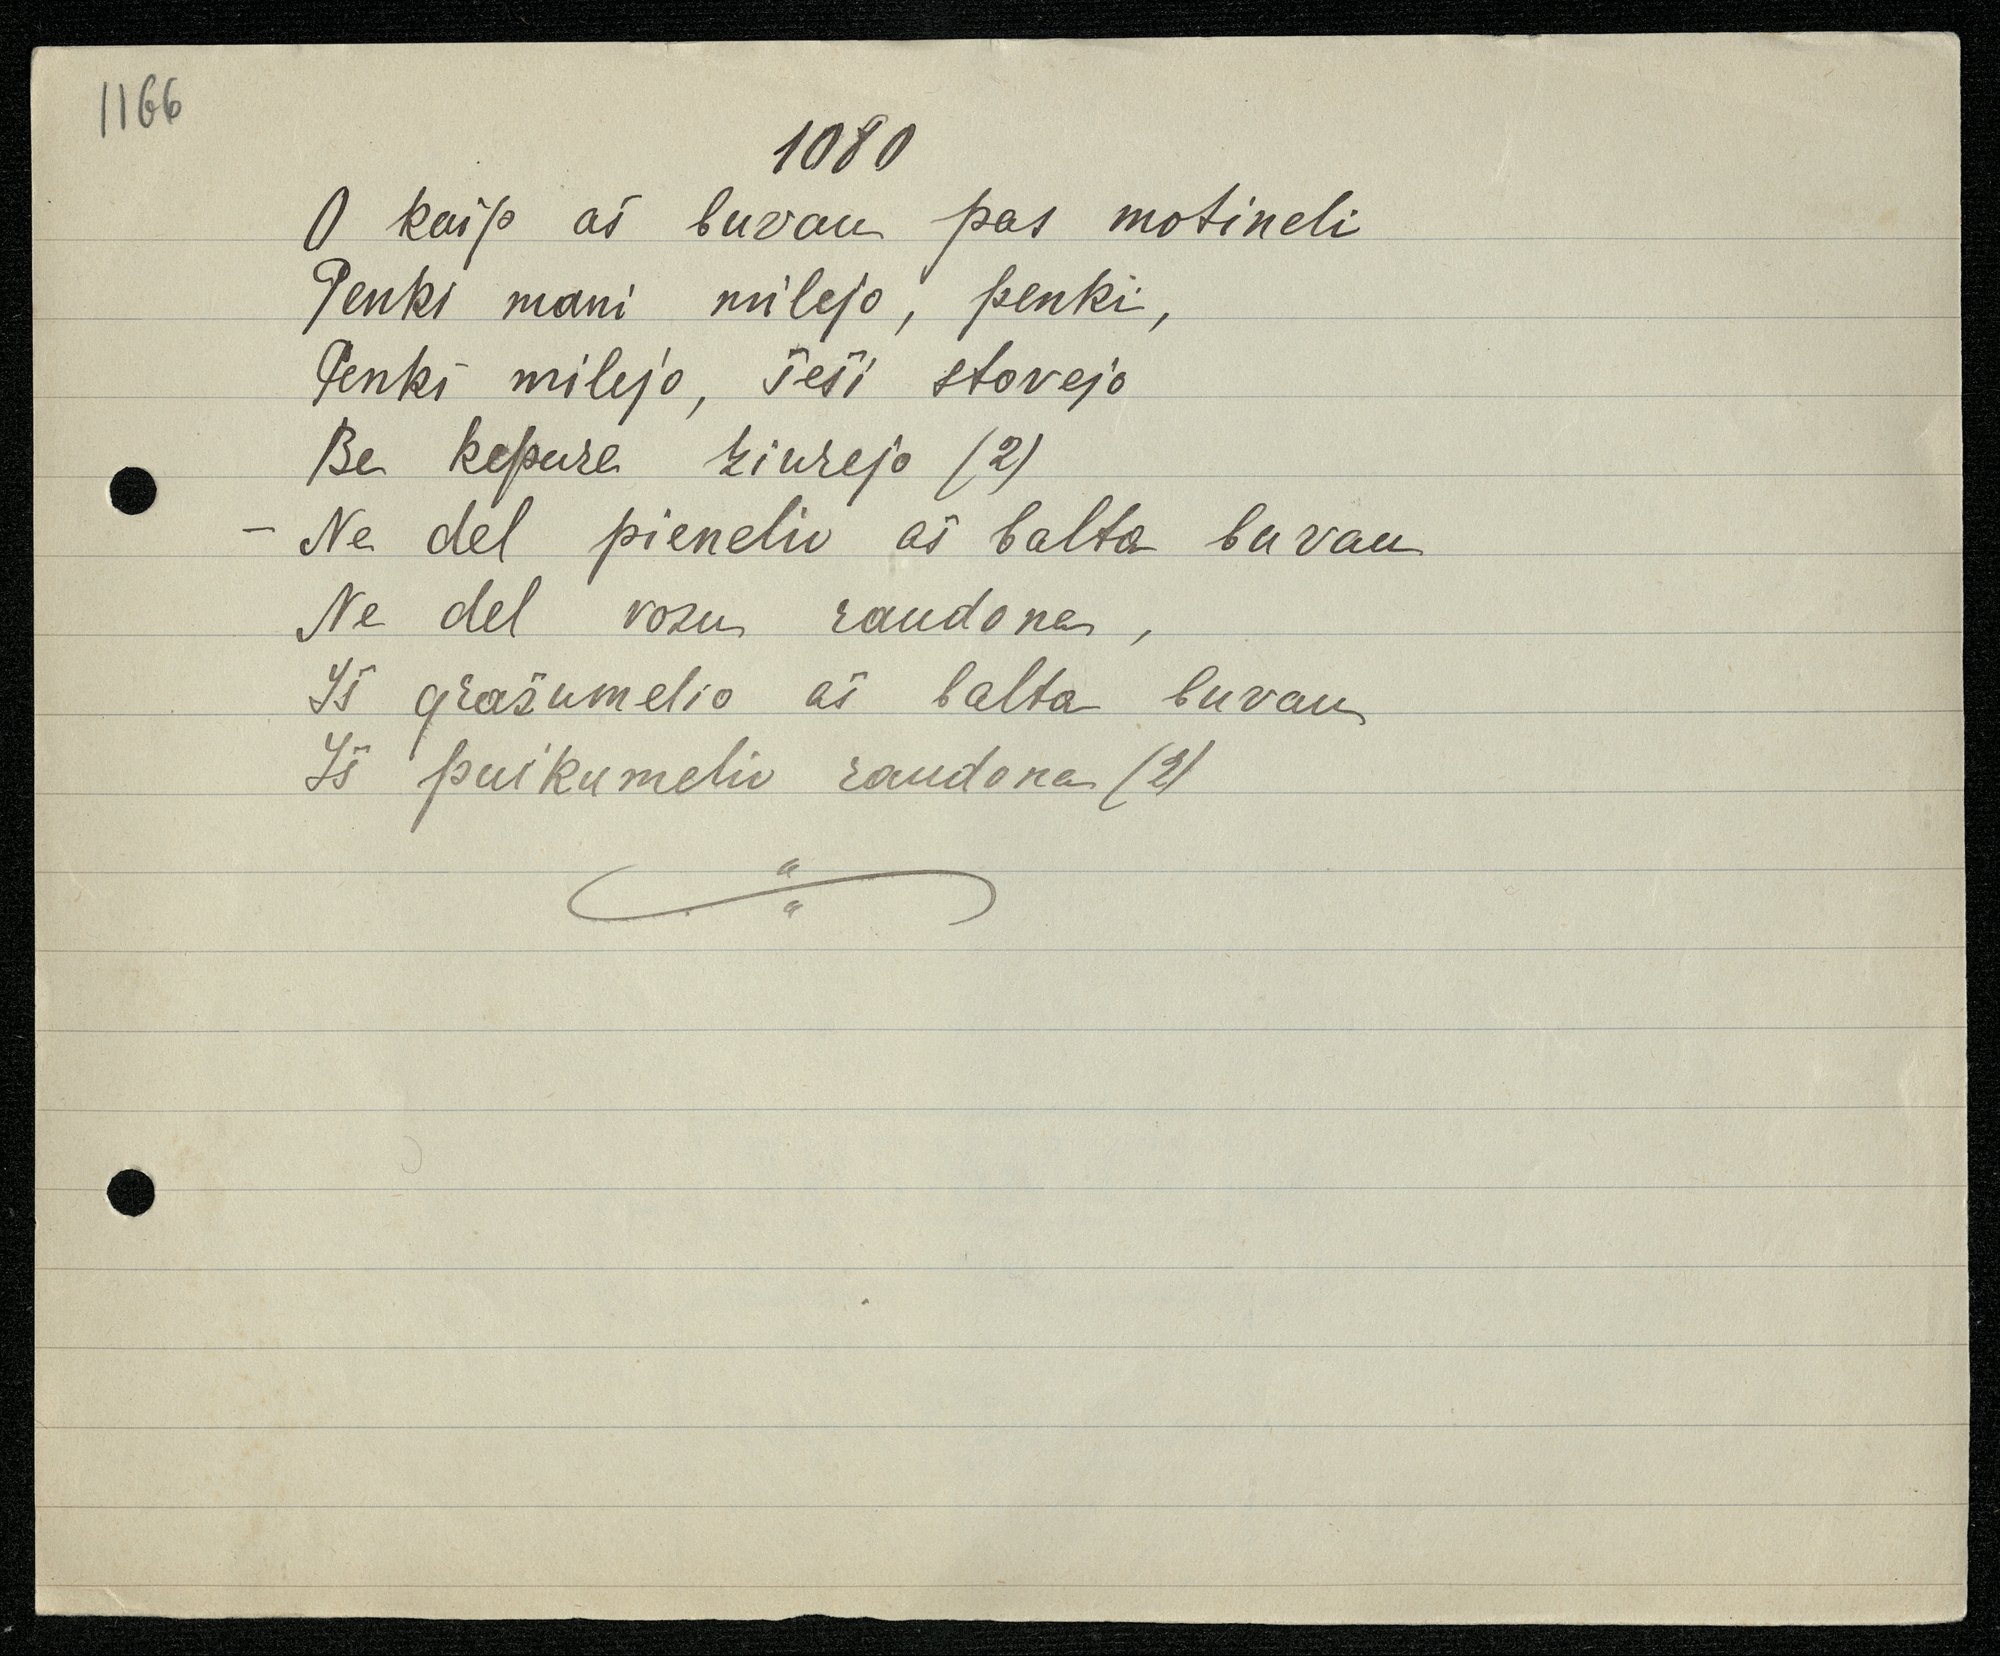 1166
1080
O kaip aš buvau pas motineli
Penki mani milejo, penki,
Penki milejo, šeši stovejo
Be kepure žiurejo (2)
- Ne del pienelio aš balta buvau
Ne del rožu raudona,
Iš gražumelio aš balta buvau
Iš puikumelio raudona (2)